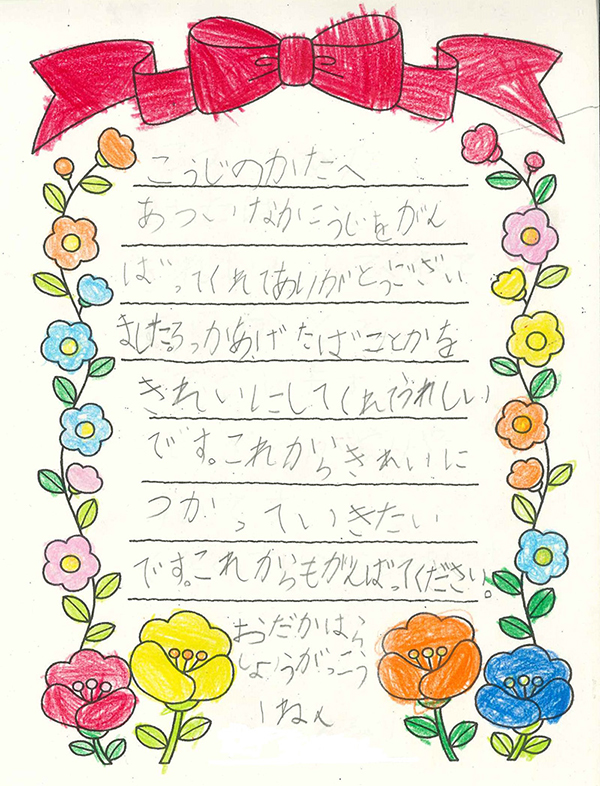 こうじのかたへ
あついなかこうじをがん
ばってくれてありがとうござい
ましたろっかあげたばことかを
きれいにしてくれてうれしい
です。これからきれいに
つかっていきたい
です。これからもがんばってください。
おだかはら
しょうがっこう
1ねん